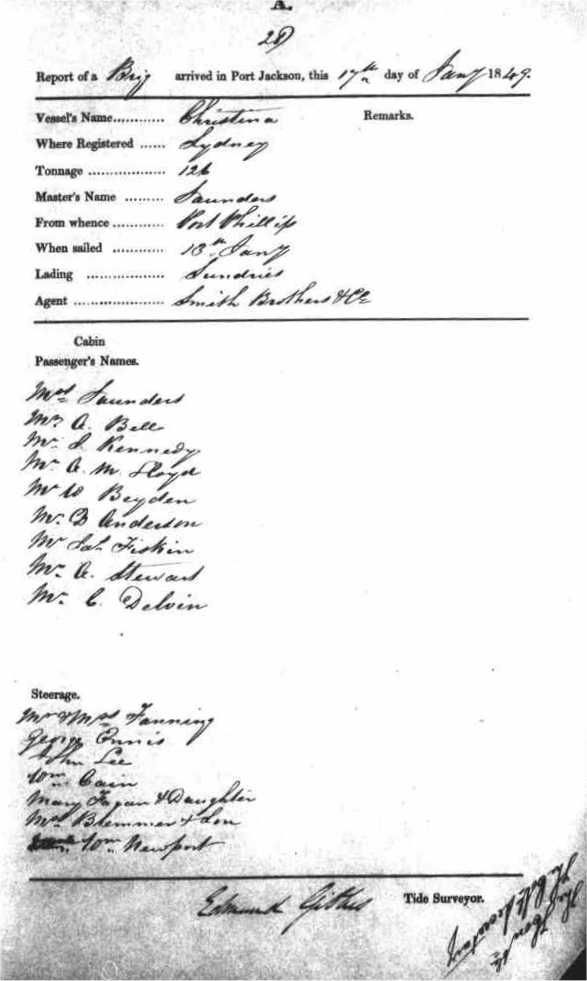 A.
28
Report of a Brig arrived in Port Jackson, this 17th day of Jany 1849.
Vessel's Name............ Christina
Remarks.
Where Registered ...... Sydney
Tonnage .................. 126
Master's Name ......... Saunders
From whence ............ Port Phillip
When sailed ............ 13th Jany
Lading .................. Sundries
Agent ..................... Smith Brothers & Co
Cabin
Passenger's Names.
Mrs Saunders
Mr A. Bell
Mr J. Kennedy
Mr A. M. Lloyd
Mr W Beyden
Mr D Anderson
Mr Jas Fiskin
Mr A. Stewart
Mr C. Delvin
Steerage.
Mr & Mrs Fanning
George Ennis
John Lee
Wm Cain
Mary Fagan & Daughter
Mrs Blemmer & Son
Wm Newport
Edmund
Tide Surveyor.